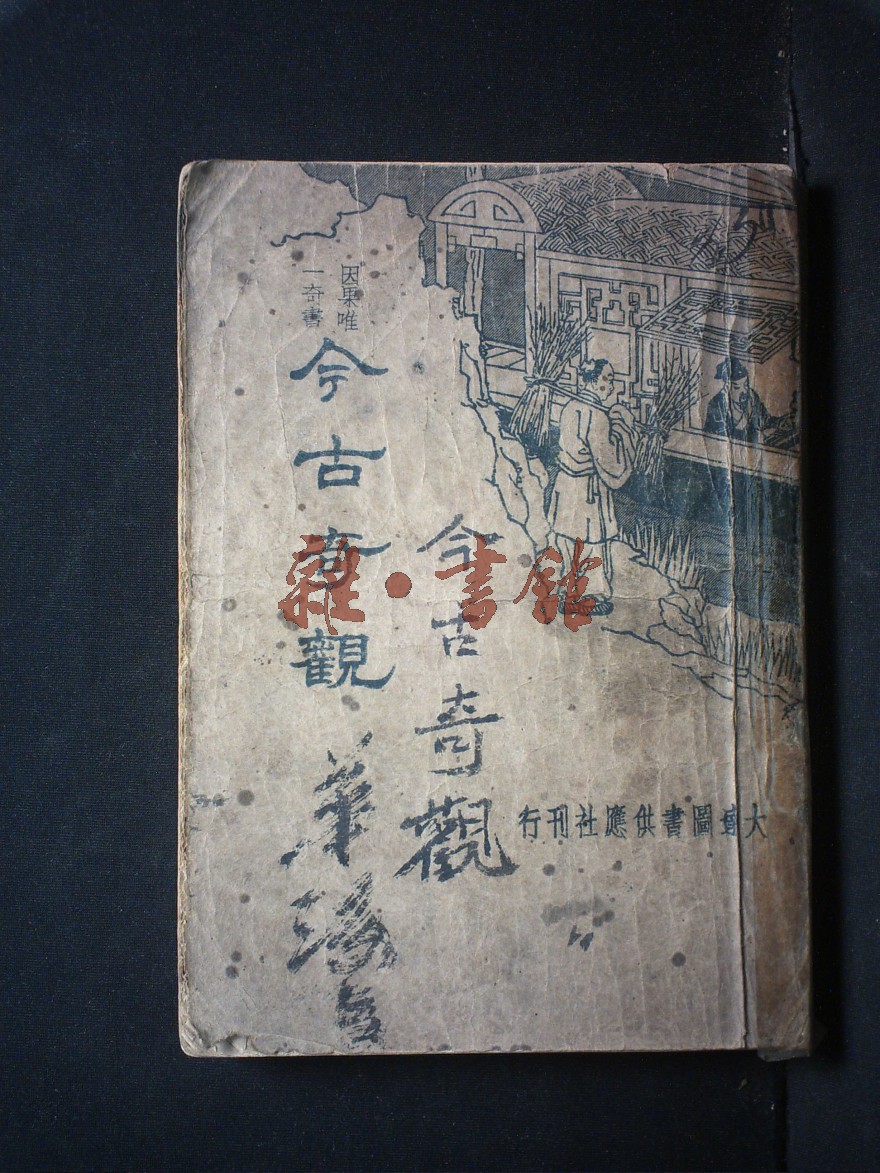 因果唯
一奇書
今古奇觀
今古奇觀
大達圖書供應社刊行
雜·書館